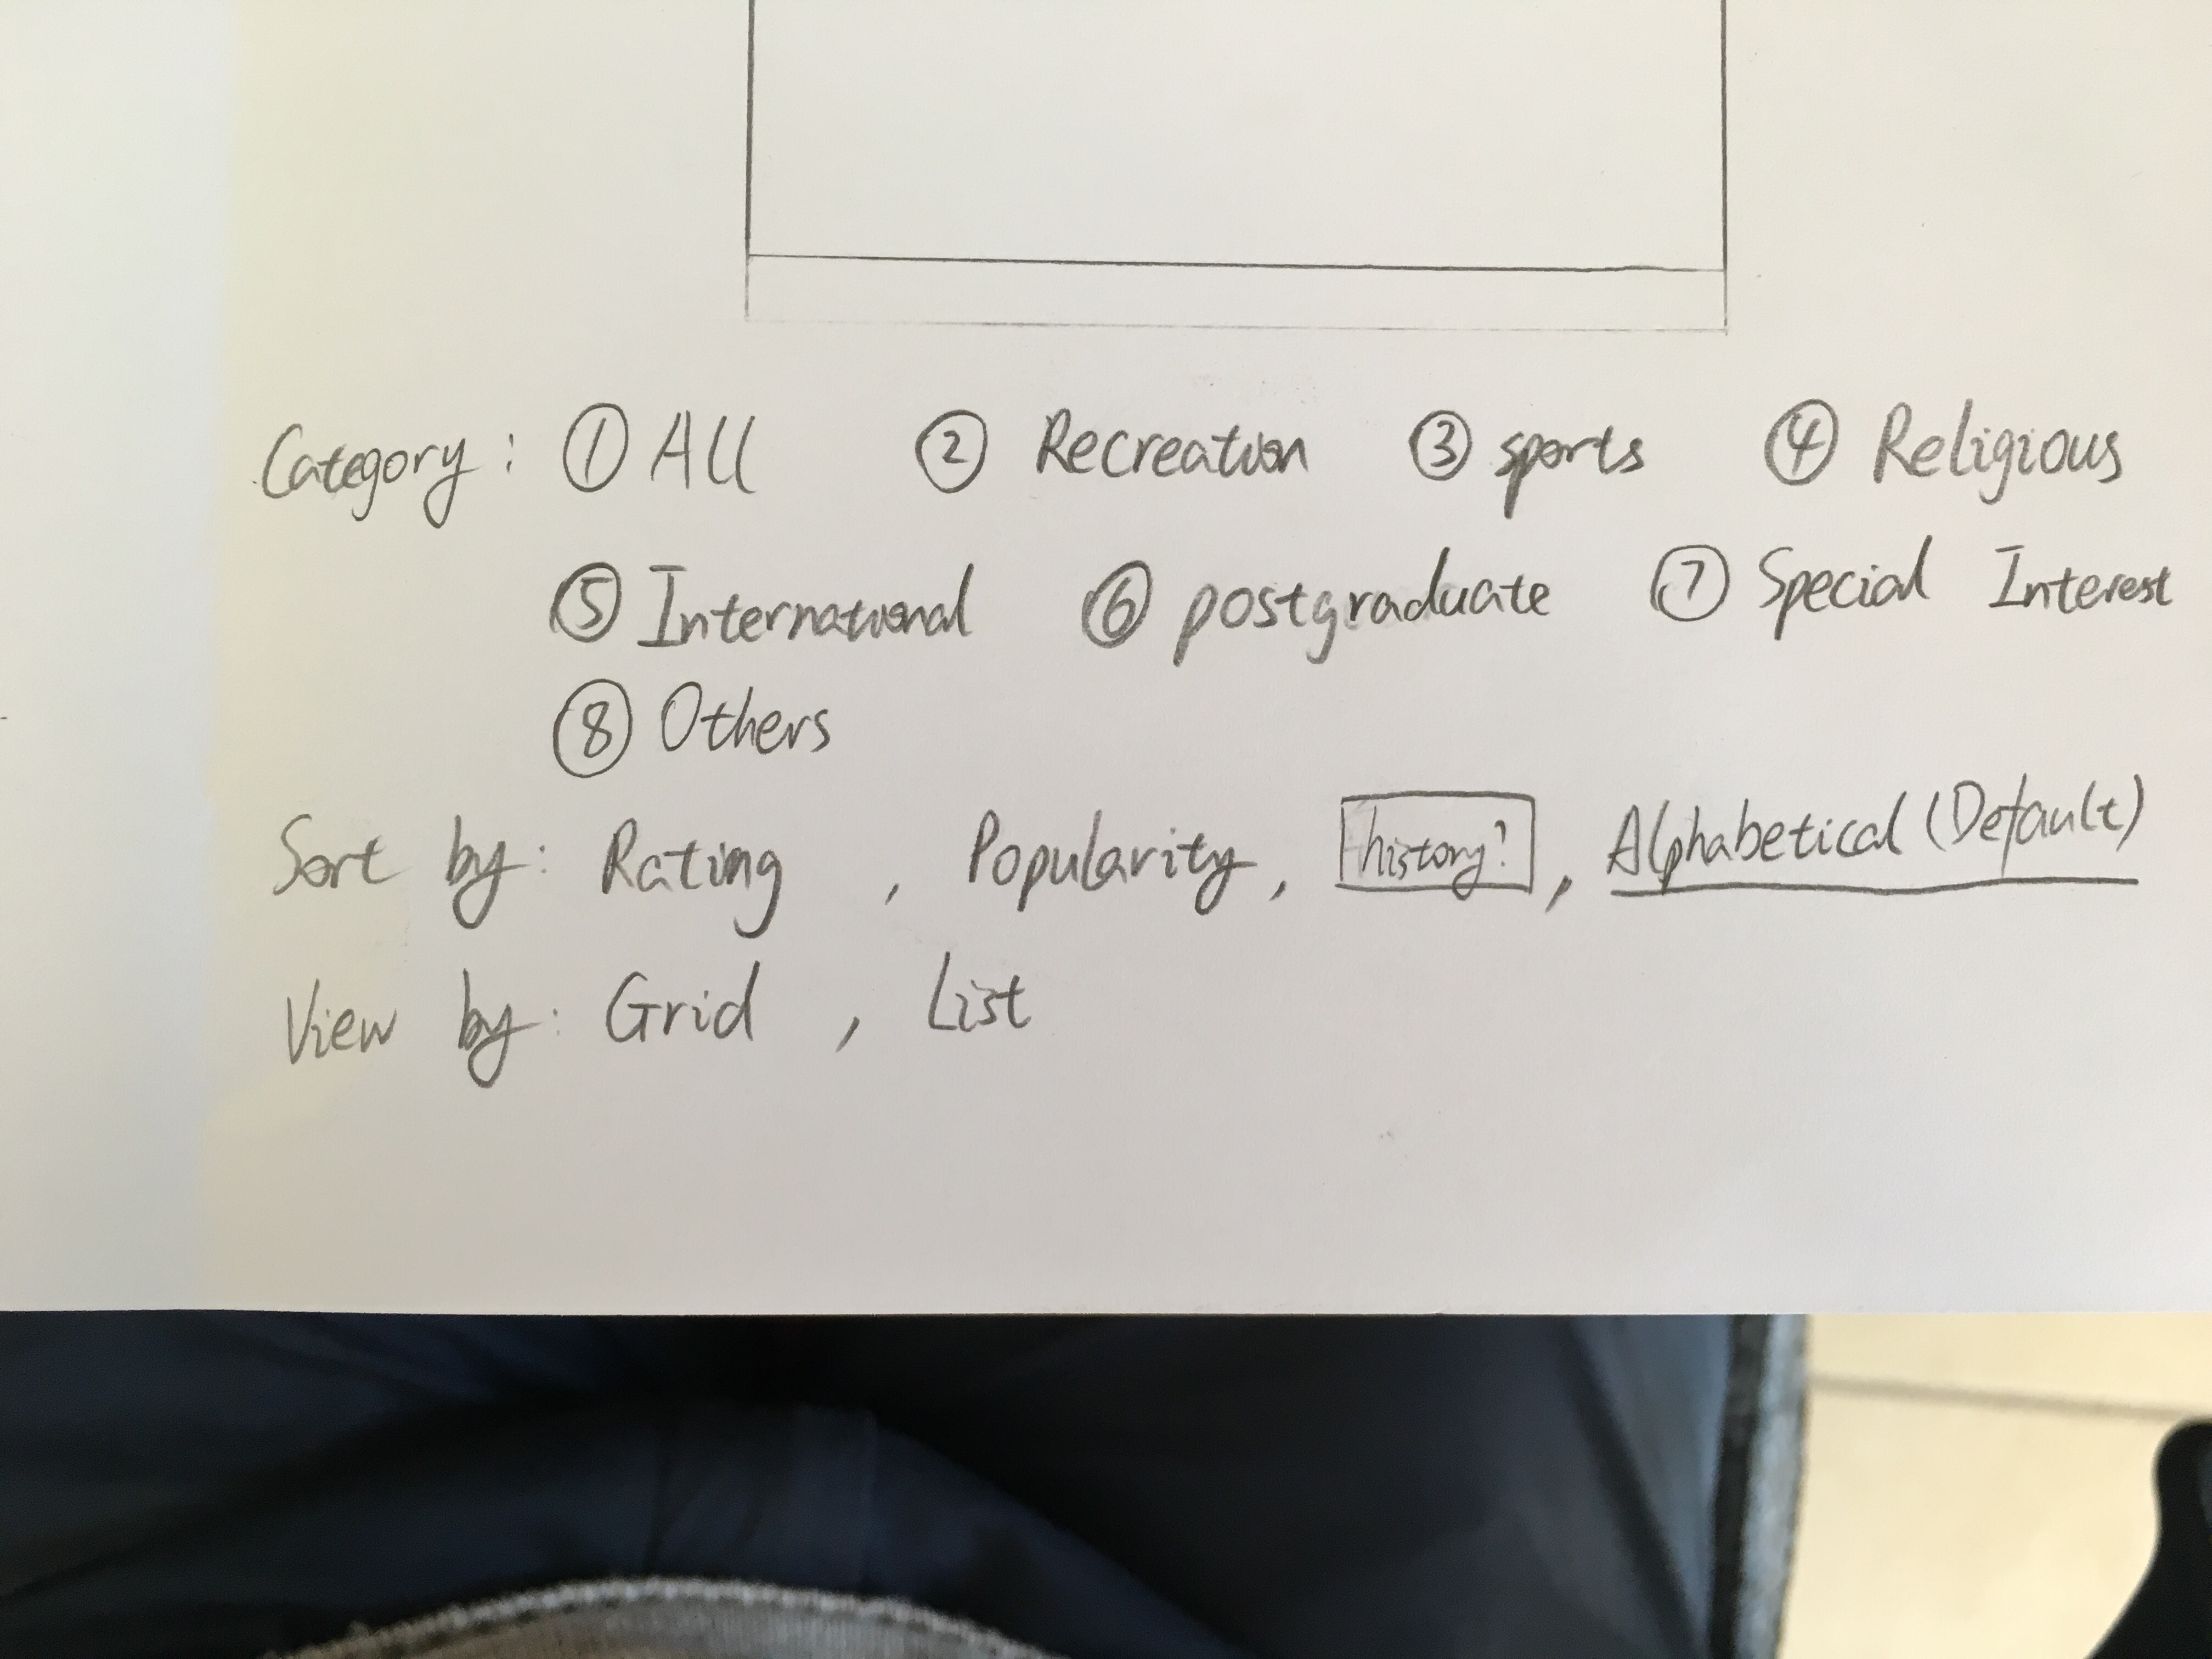 Category : ① All ② Recreation ③ sports ④ Religious
⑤ International ⑥ postgraduate ⑦ Special Interest
⑧ Others
Sort by : Rating , Popularity , history? , Alphabetical (Default)
View by : Grid , List